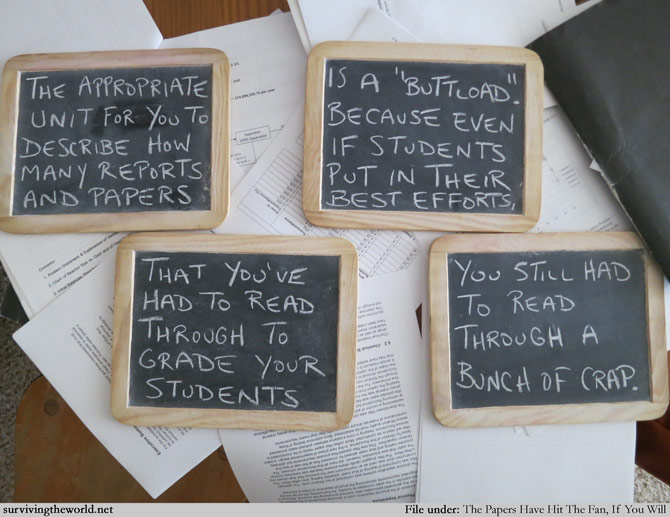 THE APPROPRIATE
UNIT FOR YOU TO
DESCRIBE HOW
MANY REPORTS
AND PAPERS
THAT YOU'VE
HAD TO READ
THROUGH TO
GRADE YOUR
STUDENTS
IS A "BUTTLOAD".
BECAUSE EVEN
IF STUDENTS
PUT IN THEIR
BEST EFFORTS,
YOU STILL HAD
TO READ
THROUGH A
BUNCH OF CRAP.
survivingtheworld.net
File under: The Papers Have Hit The Fan, If You Will